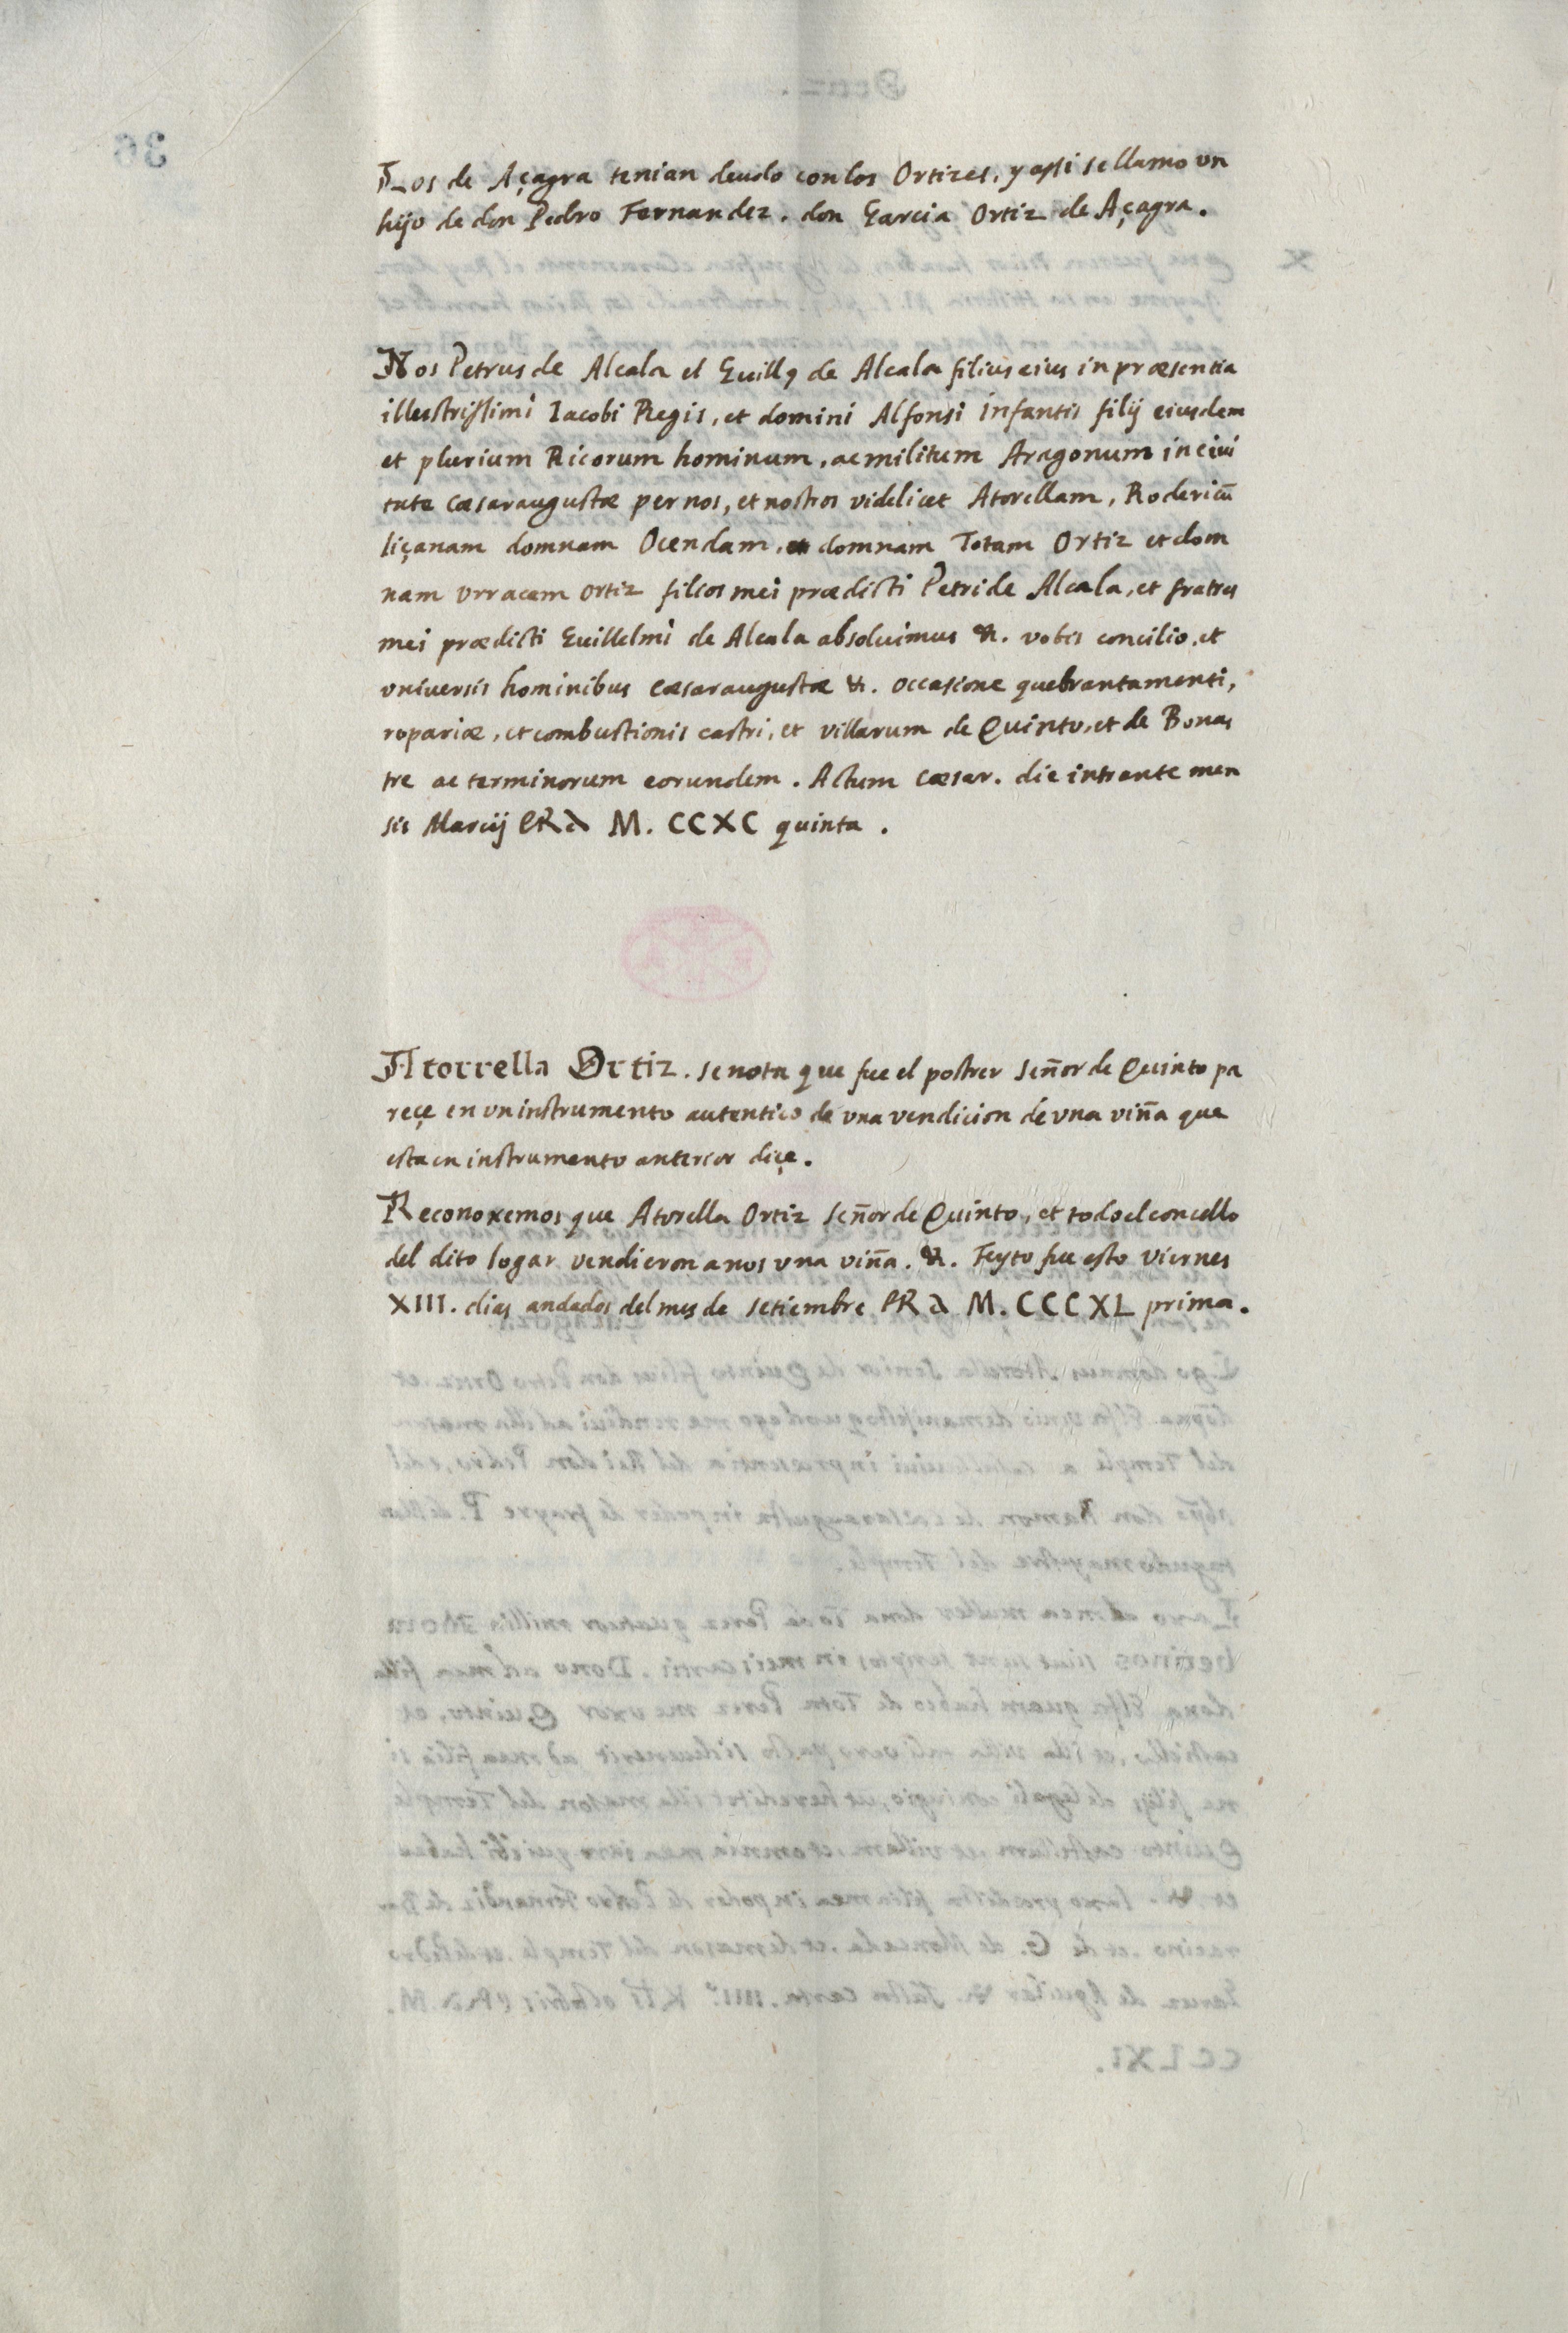 Los de Açagra tenian deudo con los Ortizes, y assi se llamo un
hijo de don Pedro Fernandez. don Garcia Ortiz de Açagra.
Nos Petrus de Alcala et Guillꝰ de Alcala filius eius in præsentia
illustrissimi Iacobi Regis, et domini Alfonsi infantis filij eiusdem
et plurium Ricorum hominum, ac militum Aragonum in civi
tate Cæsaraugustæ per nos, et nostros videlicet Atorellam, Rodericū
liçanam domnam Ocendam, et domnam Totam Ortiz et dom
nam Vrracam Ortiz filios mei prædicti Petri de Alcala, et fratres
mei prædicti Guillelmi de Alcala absoluimus &. vobis concilio, et
vniversis hominibus Cæsaraugustæ &. occasione quebrantamenti,
ropariæ, et combustionis castri, et villarum de Quinto, et de Bonas
tre ac terminorum eorundem. Actum Cæsar. die intrante men
sis Marcij ERA M. CCXC quinta.
Atorrella Ortiz. se nota que fue el postrer señor de Quinto pa
reçe en un instrumento autentico de vna vendicion de vna viña que
esta en instrumento anterior diçe.
Reconoxemos que Atorella Ortiz señor de Quinto, et todo el concello
del dito logar vendieron a nos vna viña. &. Feyto fue esto viernes
XIII. dias andados del mes de setiembre ERA M. CCCXL prima.